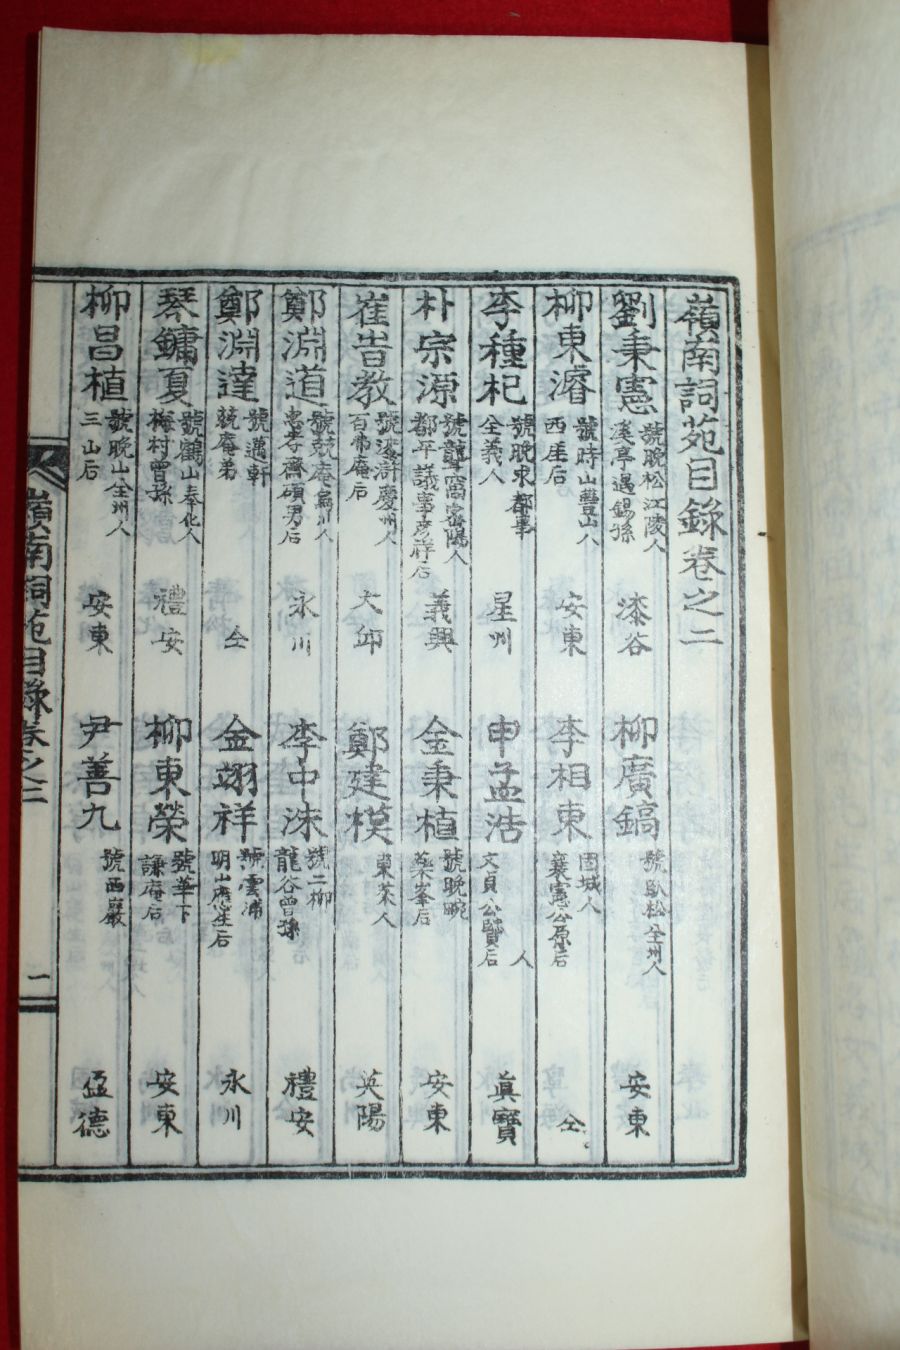 嶺南詞苑目錄卷之二
劉秉憲 號晚松江陵人 溪亭遇錫孫 漆谷 柳廣鎬 號臥松全州人 安東
柳東濬 號時山豊山人 西厓后 安東 李相東 固城人 襄憲公原后 仝
李種杞 號晚求都事 全義人 星州 申孟浩 人 文貞公賢后 眞寶
朴宗源 號聾窩密陽人 都平議事彦祥后 義興 金秉植 號晚畹 藥峯后 安東
崔旹敎 慶州人 百弗庵后 大邱 鄭建模 東萊人 英陽
鄭淵道 號兢庵烏川人 忠孝齋碩男后 永川 李中洙 號二柳 龍谷曾孫 禮安
鄭淵達 號邁軒 兢庵弟 仝 金翊祥 號雲浦 明山應生后 永川
琴鏞夏 號鶴山奉化人 梅村曾孫 禮安 柳東榮 號華下 謙庵后 安東
柳昌植 號晚山全州人 三山后 安東 尹善九 號西巖 盈德
嶺南詞苑目錄卷之二 一